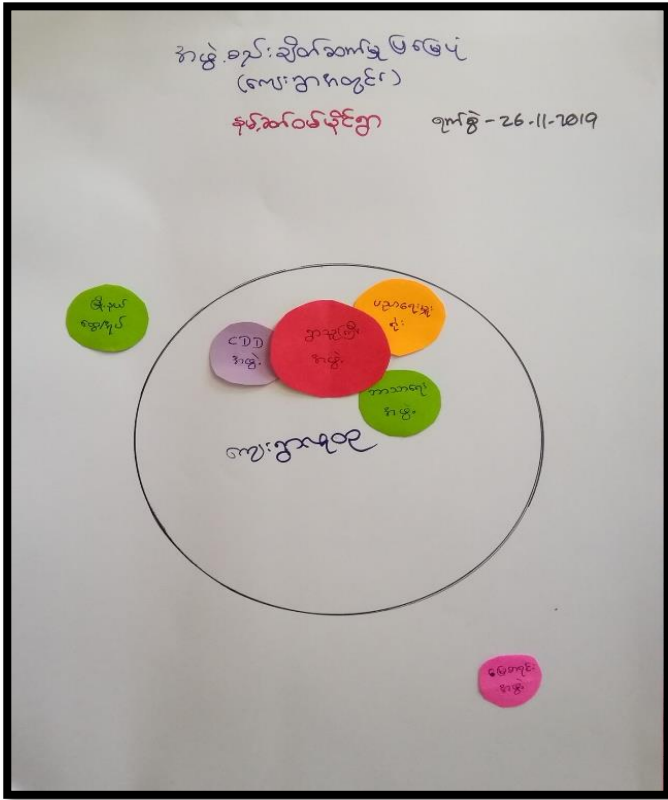 အဖွဲ့စည်းချိတ်ဆက်မှုပြမြေပုံ
(ကျေးရွာအတွင်း)
နမ့်ဆတ်ဝမ်မိုင်ရွာ ရက်စွဲ - 26-11-2019
မြို့နယ်
CDD
အဖွဲ့
ရွာသူကြီး
အဖွဲ့
ပညာရေးမှူး
ရုံး
ဘာသာရေး
အဖွဲ့
ကျေးရွာလူထု
မြေစာရင်း
အဖွဲ့